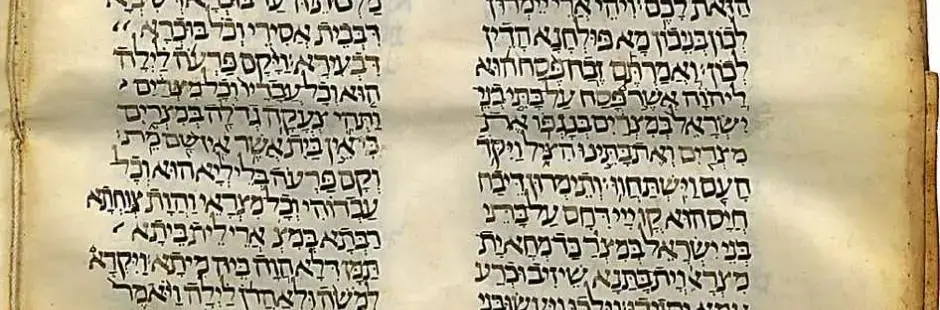 הזאת לכם: ויהי ארי יימרון
לכון בניכון מא פולחנא הדין
לכון: ואמרתם זבח פסח הוא
ליהוה אשר פסח על בתי בני
ישראל במצרים בנגפו את
מצרים ואת בתינו הציל ויקד
העם וישתחוו: ותימרון דיבח
חיס הוא קד ייי דחס על בתי
בני ישראל במצר כד מחא ית
מצראי וית בתנא שיזיב וכרע
עמא וילכו ויעשו בני
דבבית אסירי וכל בוכרא
דבעירא: ויקם פרעה לילה
הוא וכל עבדיו וכל מצרים
ותהי צעקה גדלה במצרים
כי אין בית אשר אין שם מת:
וקם פרעה בליליא הוא וכל
עבדוהי וכל מצראי והות צוחתא
רבתא במצ ארי לית ביתא
תמן דלא הוה ביה מיתא: ויקרא
למשה ולאהרן לילה ויאמר